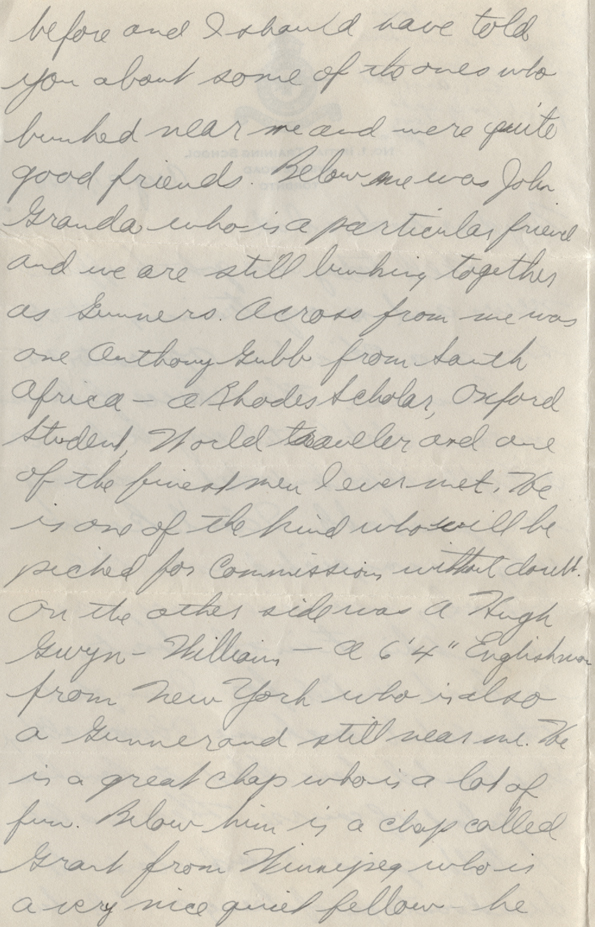 before and I should have told
you about some of the ones who
bunked near me and were quite
good friends. Below me was John
Granda who is a particular friend
and we are still bunking together
as Gunners. Across from me was
one Anthony Gubb from South
Africa - a Rhodes Scholar, Oxford
Student, World traveler and one
of the finest men I ever met. He
is one of the kind who will be
picked for Commission without doubt.
On the other side was a Hugh
Gwyn-William - a 6'4" Englishman
from New York who is also
a Gunner and still near me. He
is a great chap who is a lot of
fun. Below him is a chap called
Grant from Winnipeg who is
a very nice quiet fellow - he